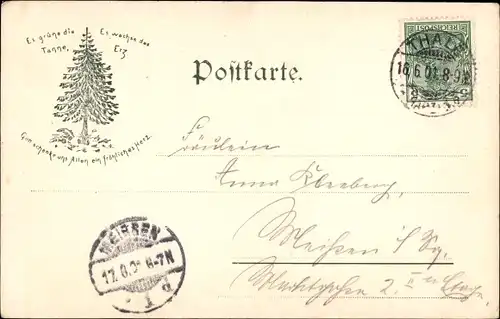 Es grüne die Tanne, Es wachse das Erz
Gott schenke uns Allen ein fröhliches Herz.
Postkarte.
REICHSPOST
THALE
16.6.01. 8-9
Fräulein
Anna
Meißen
2. Etage
MEISSEN
17.6.01. 6-7N